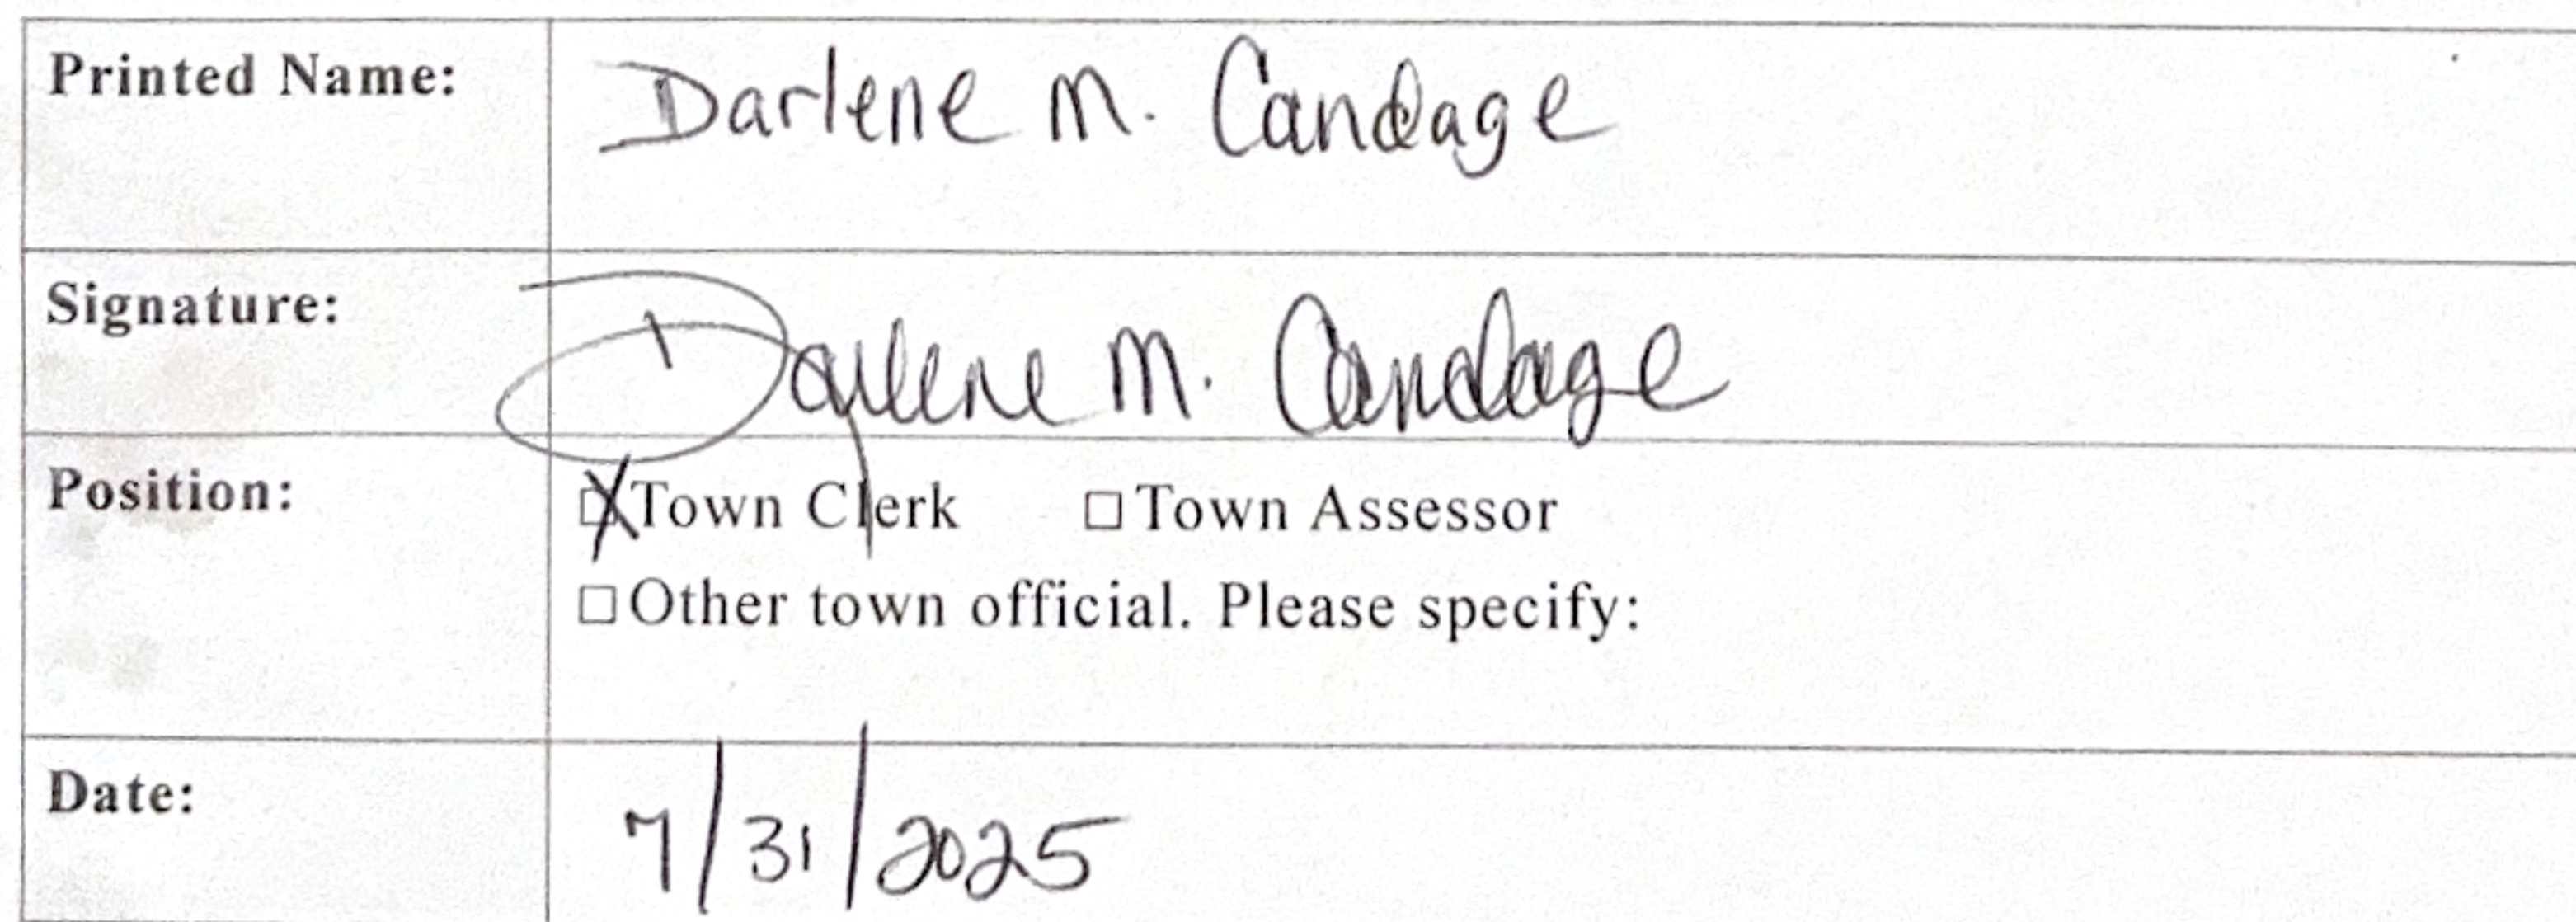 Printed Name: Darlene M. Candage
Signature: Darlene M. Candage
Position: ☒ Town Clerk ☐ Town Assessor
☐ Other town official. Please specify:
Date: 7/31/2025